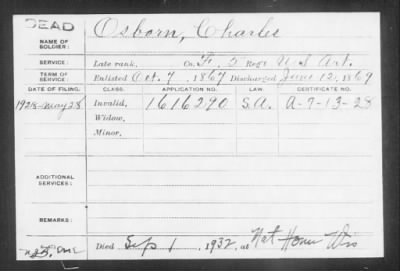 DEAD
NAME OF SOLDIER: Osborn, Charles
SERVICE: Late rank, Co. F, 5 Reg't U S Art.
TERM OF SERVICE: Enlisted Oct. 7, 1867 Discharged June 12, 1869
DATE OF FILING. CLASS. APPLICATION NO. LAW. CERTIFICATE NO.
1928-May 28 Invalid, 1616290 S.A. A-9-13-28
Widow,
Minor,
ADDITIONAL SERVICES:
REMARKS:
Died Sep 1, 1932, at Nat Home Wis